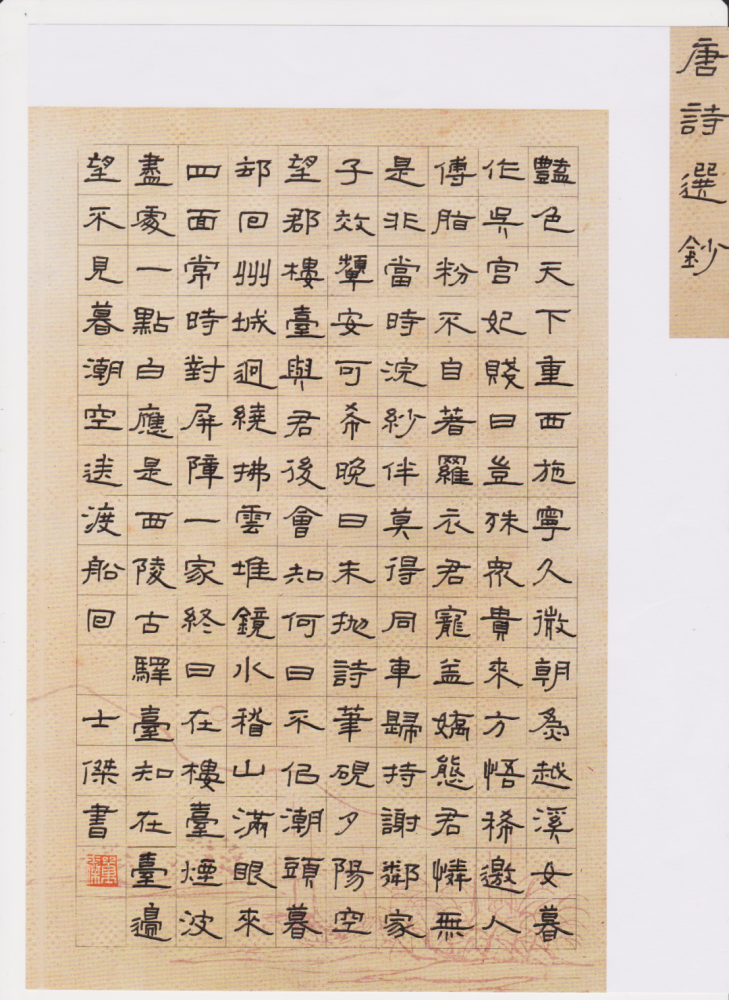 唐詩選鈔
豔色天下重西施寧久微朝為越溪女暮
作吳宮妃賤日豈殊眾貴來方悟稀邀人
傅脂粉不自著羅衣君寵益嬌態君憐無
是非當時浣紗伴莫得同車歸持謝鄰家
子效顰安可希晚日未拋詩筆硯夕陽空
望郡樓臺與君後會知何日不似潮頭暮
却回州城迥繞拂雲堆鏡水稽山滿眼來
四面常時對屏障一家終日在樓臺煙波
盡處一點白應是西陵古驛臺知在臺邊
望不見暮潮空送渡船回 士傑書